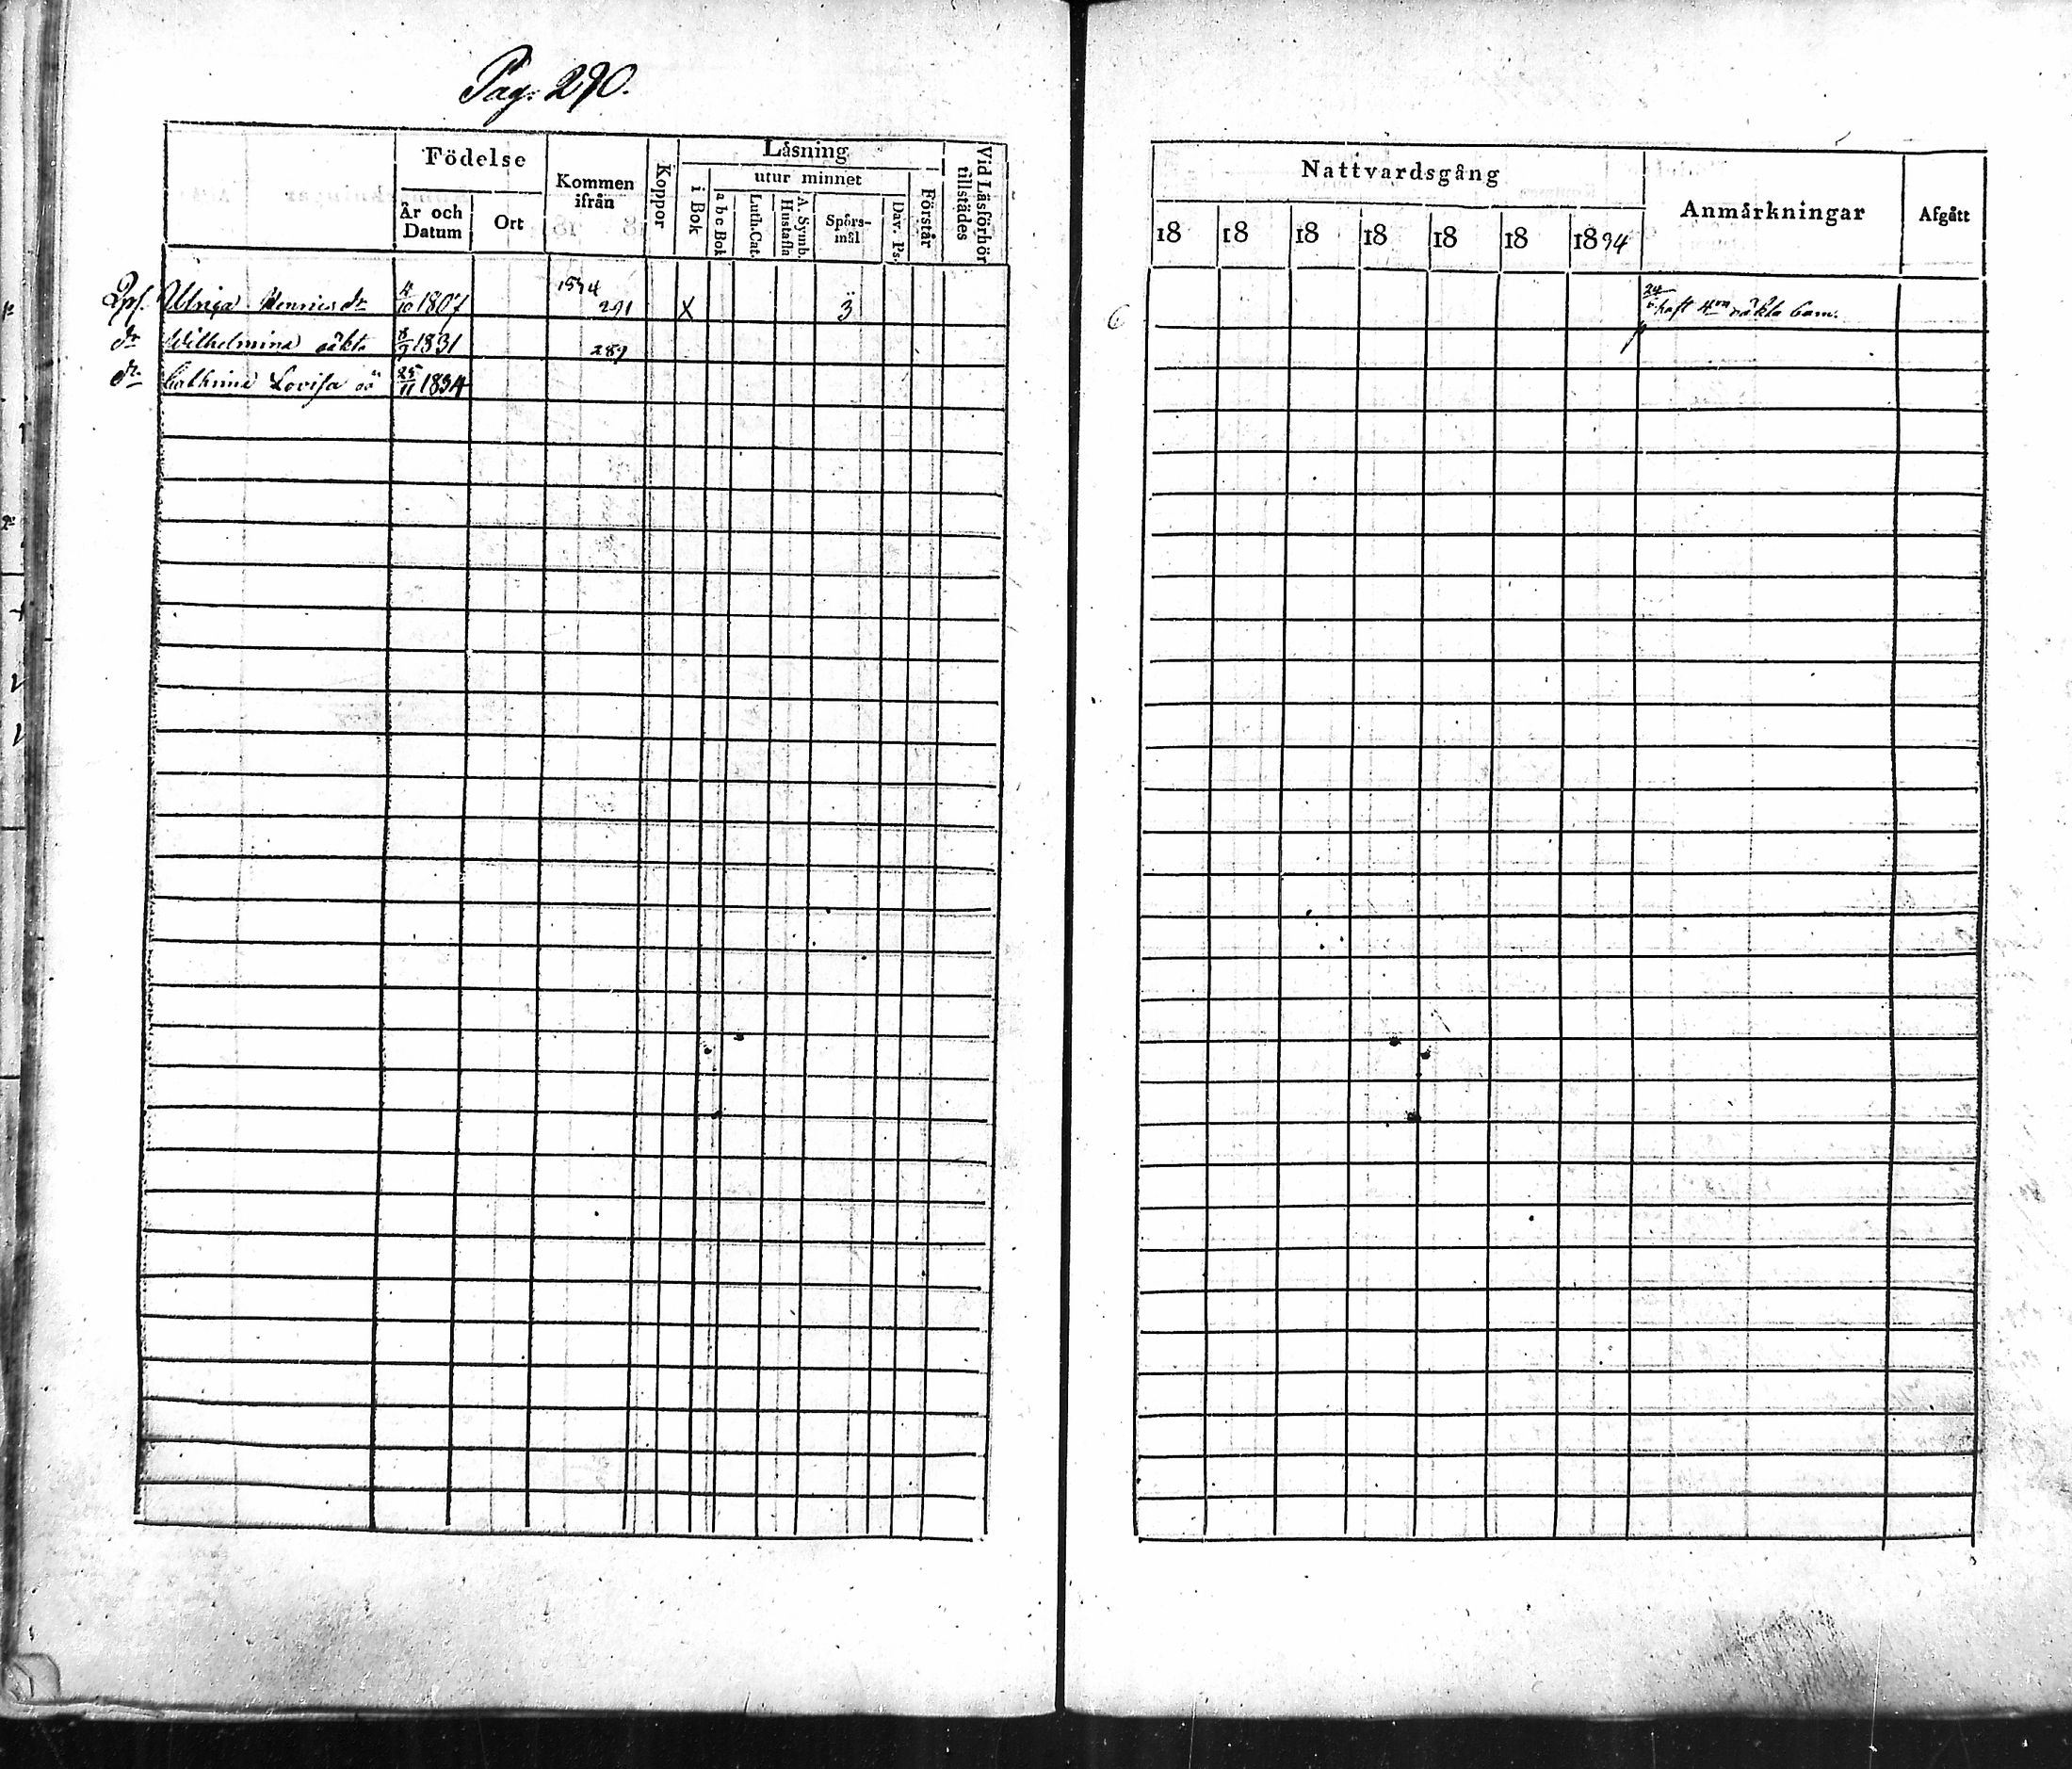 Pag. 290.
Födelse
År och Datum
Ort
Kommen ifrån
Koppor
Läsning
i Bok
utur minnet
a b c Bok
Luth. Cat.
A. Symb. Hustafla
Spörs-mål
Dav. Ps.
Förstår
Vid Läsförhör tillstädes
Qpf. Ulrica Henricsdr 4/10 1807 1834 291 X 3
dr Wilhelmina oäkta 8/9 1831 289
dr Cathrina Lovisa oä 25/11 1834
Nattvardsgång
18 18 18 18 18 18 1834
Anmärkningar
Afgått
haft oäkta barn.